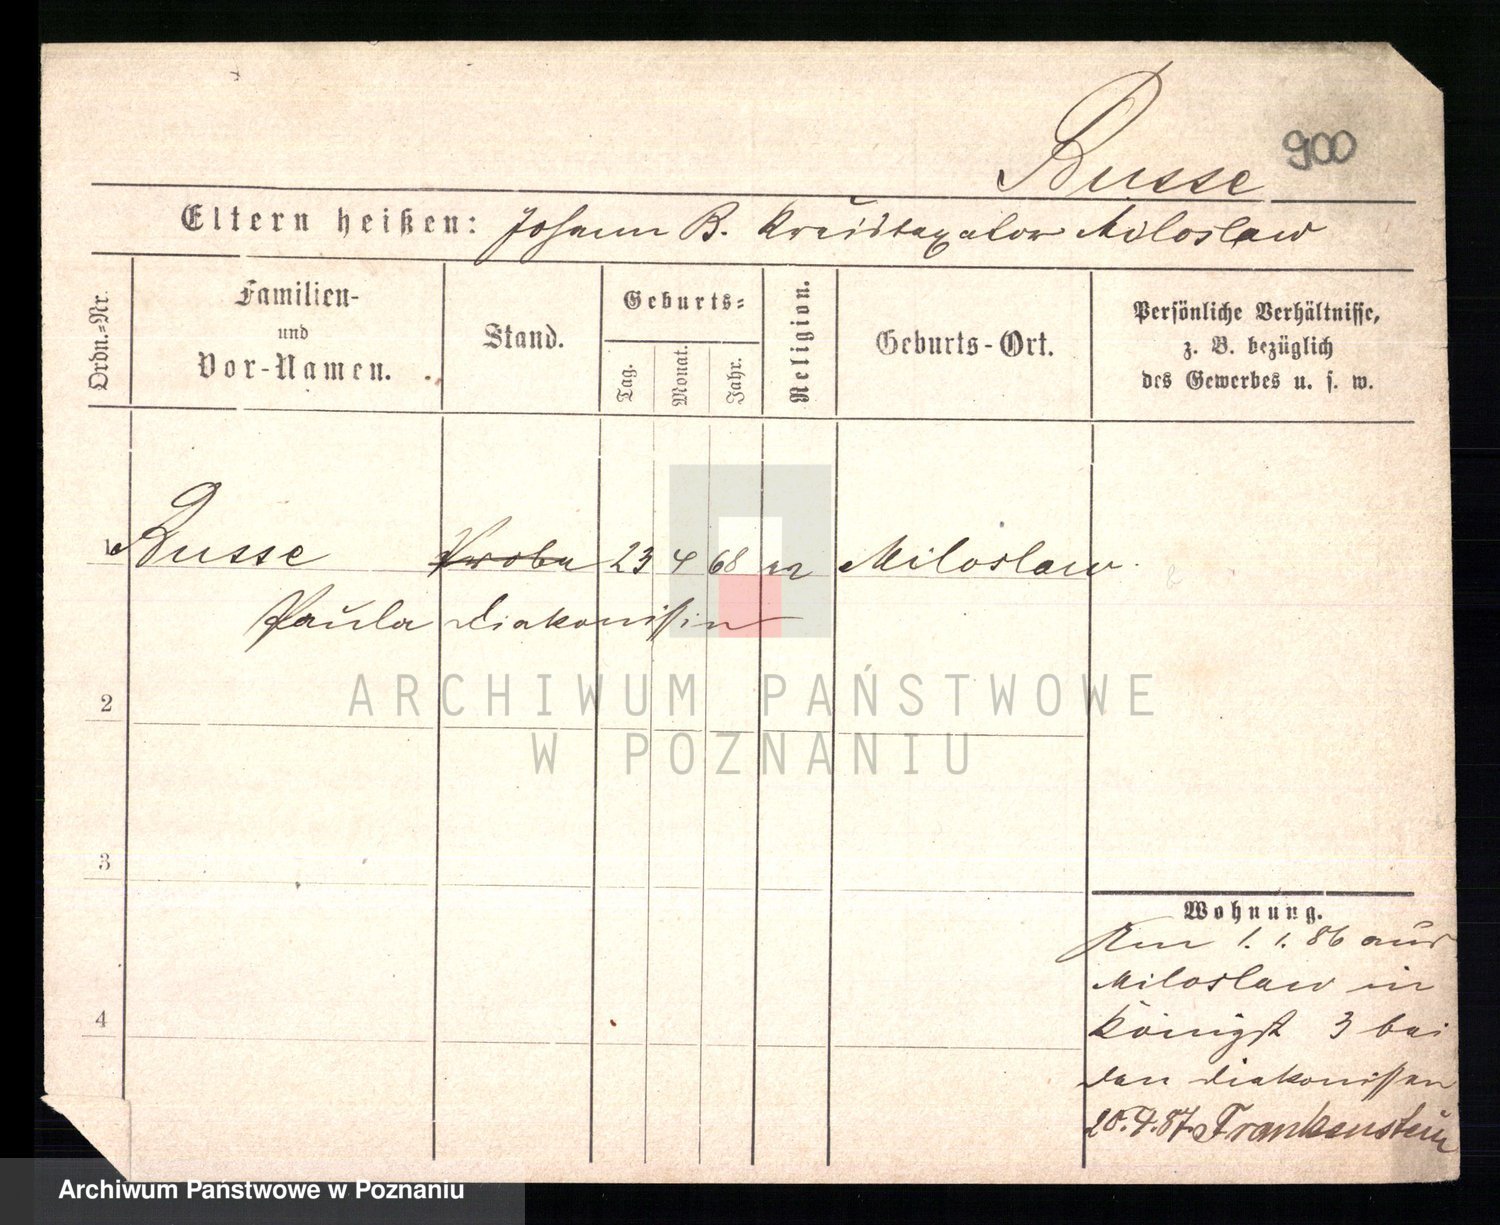 Busse 900
Eltern heißen: Johann B. Kreistaxator Miloslaw
Ordn.=Nr.
Familien-
und
Vor-Namen.
Stand.
Geburts=
Tag.
Monat.
Jahr.
Religion.
Geburts-Ort.
Persönliche Verhältnisse,
z. B. bezüglich
des Gewerbes u. s. w.
1 Busse Probe 23 4 68 Miloslaw
Paula Diakonissin
2
3
4
Wohnung.
Am 1. 1. 86 aus
Miloslaw in
Königst 3 bei
den Diakonissen
20.4.87 Frankenstein
ARCHIWUM PAŃSTWOWE
W POZNANIU
Archiwum Państwowe w Poznaniu